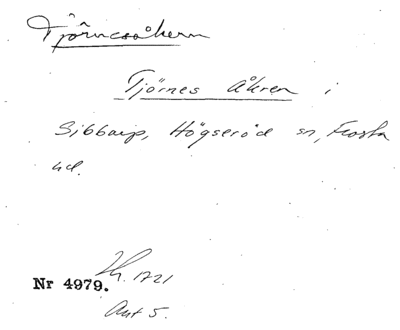 Tjörnesåkern
Tjörnes åkren i
Sibbarp, Högseröd sn, Frosta
hd.
Nr 4979. 1721
Ant 5.